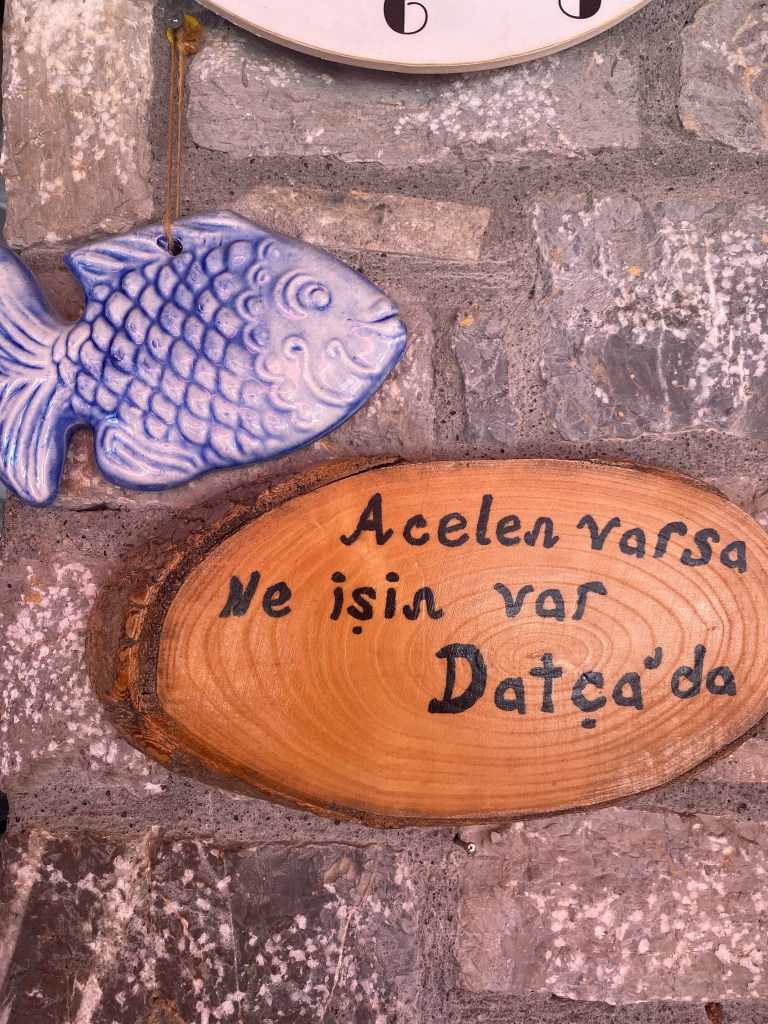 6
Acelen varsa
Ne işin var
Datça'da